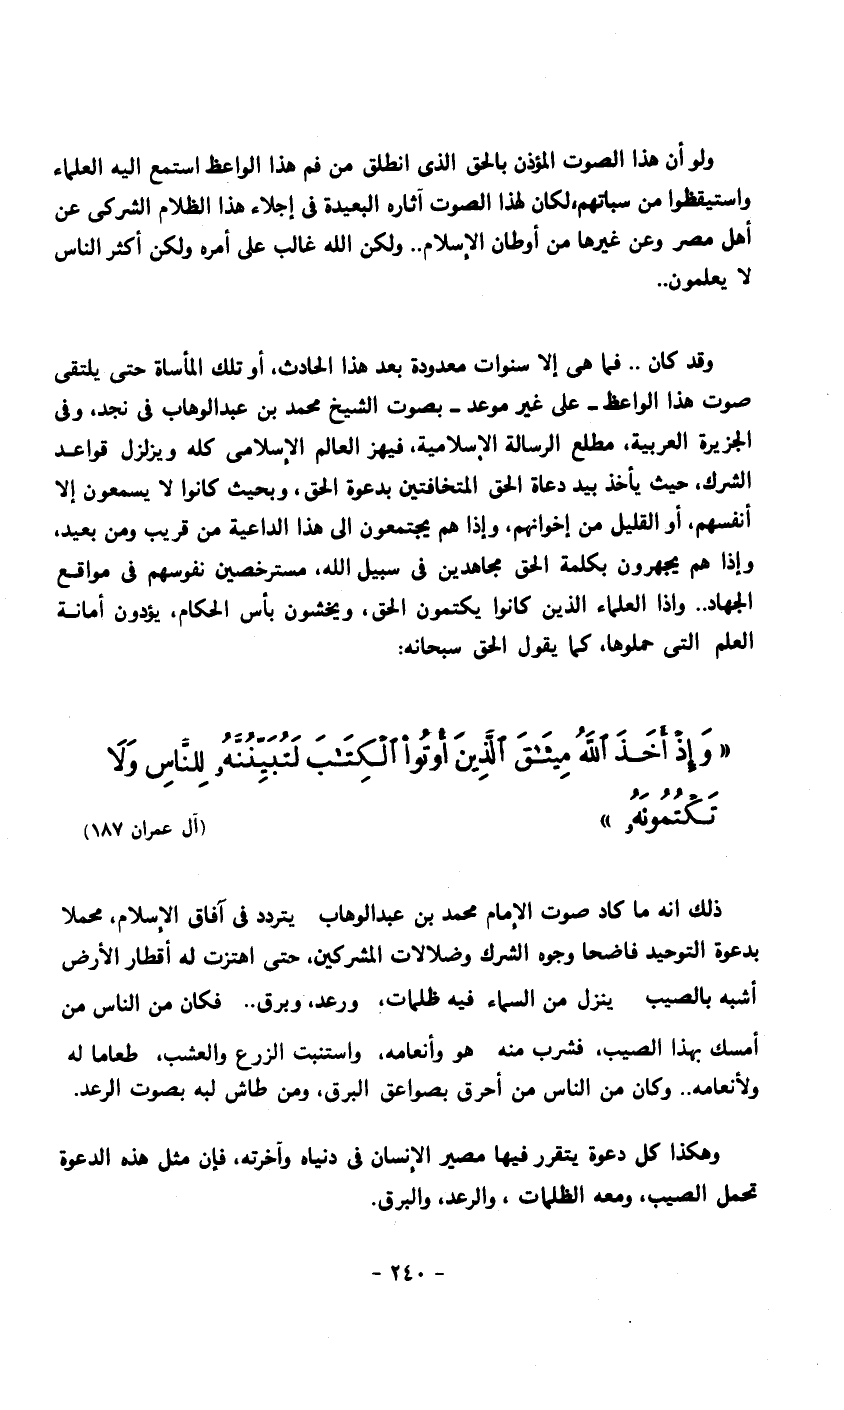 ولو أن هذا الصوت المؤذن بالحق الذى انطلق من فم هذا الواعظ استمع اليه العلماء
واستيقظوا من سباتهم،لكان لهذا الصوت آثاره البعيدة فى إجلاء هذا الظلام الشركى عن
أهل مصر وعن غيرها من أوطان الإسلام.. ولكن الله غالب على أمره ولكن أكثر الناس
لا يعلمون..
وقد كان .. فما هى إلا سنوات معدودة بعد هذا الحادث، أو تلك المأساة حتى يلتقى
صوت هذا الواعظ ـ على غير موعد ـ بصوت الشيخ محمد بن عبدالوهاب فى نجد، وفى
الجزيرة العربية، مطلع الرسالة الإسلامية، فيهز العالم الإسلامى كله ويزلزل قواعـد
الشرك، حيث يأخذ بيد دعاة الحق المتخافتين بدعوة الحق، وبحيث كانوا لا يسمعون إلا
أنفسهم، أو القليل من إخوانهم، وإذا هم يجتمعون الى هذا الداعية من قريب ومن بعيد،
وإذا هم يجهرون بكلمة الحق مجاهدين فى سبيل الله، مسترخصين نفوسهم فى مواقـع
الجهاد.. واذا العلماء الذين كانوا يكتمون الحق، ويخشون بأس الحكام، يؤدون أمانـة
العلم التى حملوها، كما يقول الحق سبحانه:
« وَإِذْ أَخَذَ ٱللَّهُ مِيثَٰقَ ٱلَّذِينَ أُوتُوا۟ ٱلْكِتَٰبَ لَتُبَيِّنُنَّهُۥ لِلنَّاسِ وَلَا
تَكْتُمُونَهُۥ »
(آل عمران ١٨٧)
ذلك انه ما كاد صوت الإمام محمد بن عبدالوهاب يتردد فى آفاق الإسلام، محملا
بدعوة التوحيد فاضحا وجوه الشرك وضلالات المشركين، حتى اهتزت له أقطار الأرض
أشبه بالصيب ينزل من السماء فيه ظلمات، ورعد، وبرق.. فكان من الناس من
أمسك بهذا الصيب، فشرب منه هو وأنعامه، واستنبت الزرع والعشب، طعاما له
ولأنعامه.. وكان من الناس من أحرق بصواعق البرق، ومن طاش لبه بصوت الرعد.
وهكذا كل دعوة يتقرر فيها مصير الإنسان فى دنياه وآخرته، فإن مثل هذه الدعوة
تحمل الصيب، ومعه الظلمات ، والرعد، والبرق.
- ٢٤٠ -